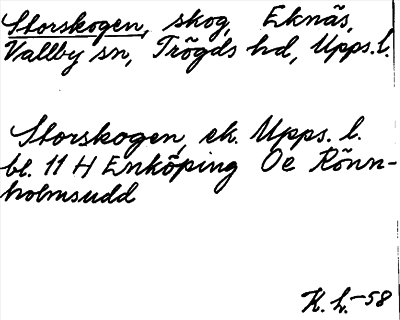 Storskogen, skog, Eknäs,
Vallby sn, Trögds hd, Upps. l.
Storskogen, ek. Upps. l.
bl. 11 H Enköping Oe Rönn-
holmsudd
K. h. -58